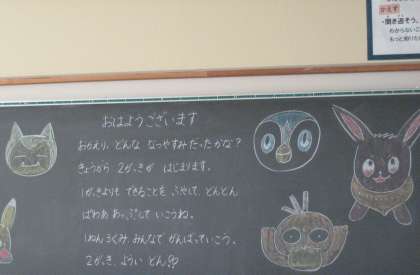 かえす
・聞き返そう。
わからないこ
もっと知りた
おはようございます
おかえり、どんな なつやすみだったかな?
きょうから 2がっきが はじまります。
1がっきよりも できることを ふやして、どんどん
ぱわあ あっぷして いこうね。
1ねん3くみ、みんなで がんばっていこう。
2がっき、よういどん!